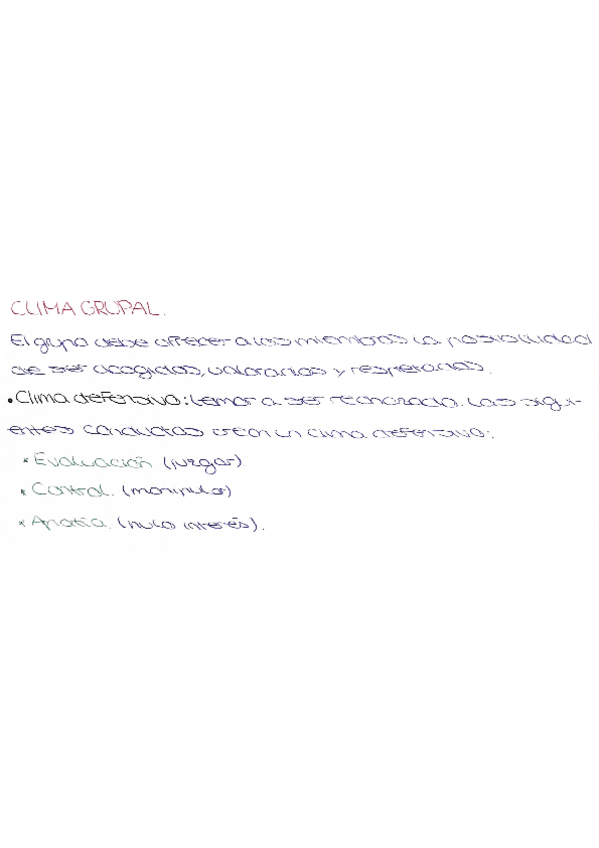 CLIMA GRUPAL.
El grupo debe ofrecer a los miembros la posibilidad
de ser acogidos, valorados y respetados.
• Clima defensivo: temor a ser rechazado. Las sigui-
entes conductas crean un clima defensivo:
* Evaluación (juzgar)
* Control. (manipular)
* Apatía. (nulo interés).